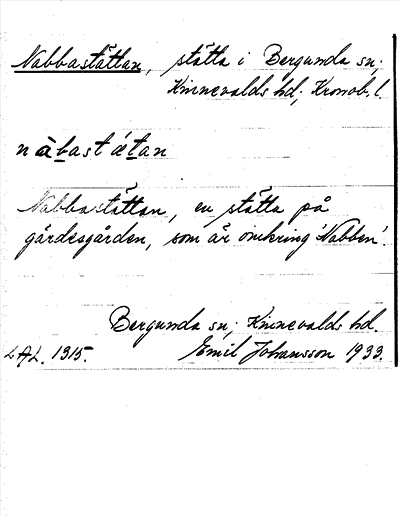 Nabbastättan, stätta i Bergunda sn;
Kinnevalds hd; Kronob. l.
nàbastǽtan
Nabbastättan, en stätta på
gärdesgården, som är omkring 'Nabben'.
Bergunda sn; Kinnevalds hd
LAL. 1315. Emil Johansson 1933.